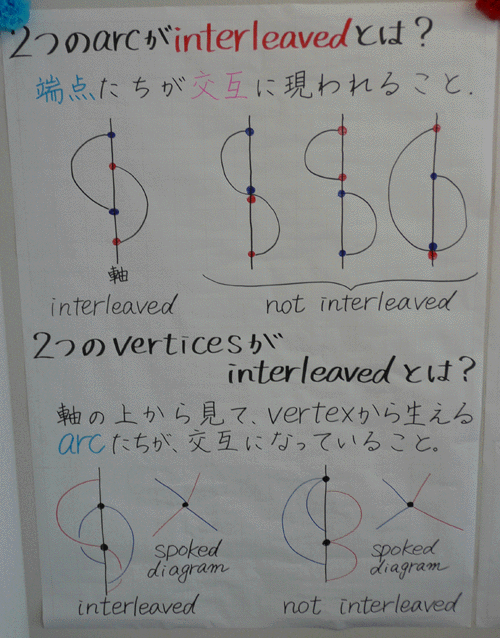 2つのarcがinterleavedとは?
端点たちが交互に現われること.
軸
interleaved
not interleaved
2つのverticesが
interleavedとは?
軸の上から見て、vertexから生える
arcたちが、交互になっていること。
spoked
diagram
spoked
diagram
interleaved
not interleaved